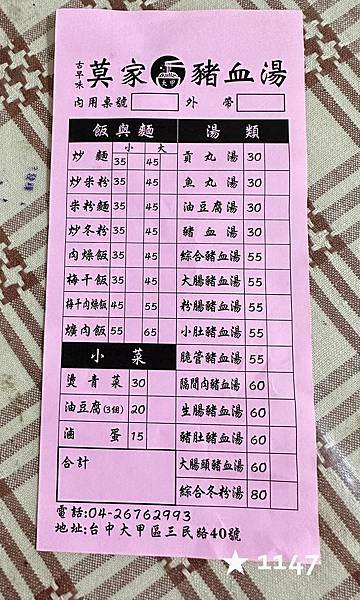 古早味 莫家 大甲 豬血湯
內用桌號 外帶
飯與麵
小 大
炒麵 35 45
炒米粉 35 45
米粉麵 35 45
炒冬粉 35 45
肉燥飯 35 45
梅干飯 35 45
梅干肉燥飯 45 55
爌肉飯 55 65
小菜
燙青菜 30
油豆腐(3個) 20
滷蛋 15
合計
湯類
貢丸湯 30
魚丸湯 30
油豆腐湯 30
豬血湯 30
綜合豬血湯 55
大腸豬血湯 55
粉腸豬血湯 55
小肚豬血湯 55
脆管豬血湯 55
隔間肉豬血湯 60
生腸豬血湯 60
豬肚豬血湯 60
大腸頭豬血湯 60
綜合冬粉湯 80
電話:04-26762993
地址:台中大甲區三民路40號
★ 1147